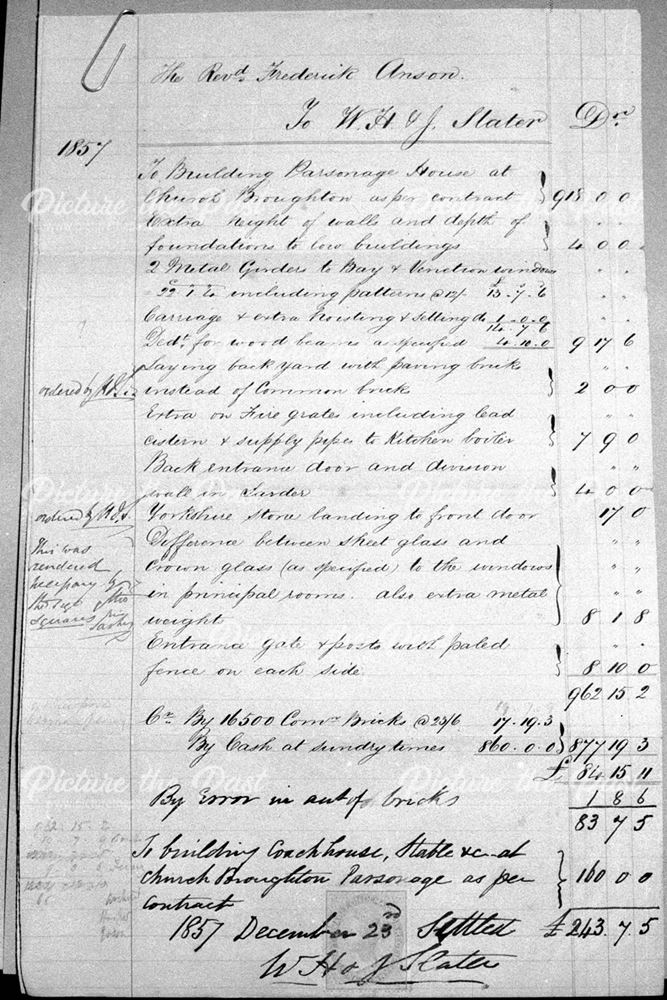 The Revd. Frederick Anson.
To W. H. & J. Slater Dr.
1857
To Building Parsonage House at
Church Broughton as per contract } 918 0 0
Extra height of walls and depth of
foundations to low buildings } 4 0 0
2 Metal Girders to Bay & Venetian windows
including patterns @ 12/- 13. 7. 6
Carriage & extra hoisting & setting do 1. 0. 0
14. 7. 6
Dedt. for wood beams as specified 4. 10. 0 9 17 6
Laying back yard with paving bricks
ordered by
instead of Common bricks } 2 0 0
Extra on Fire grates including lead
cistern & supply pipes to Kitchen boiler } 7 9 0
Back entrance door and division
wall in Larder } 4 0 0
ordered by
Yorkshire stone landing to front door 17 0
This was
rendered
necessary by
squares
Difference between sheet glass and
Crown glass (as specified) to the windows
in principal rooms. also extra metal
weights } 8 1 8
Entrance gate & posts with paled
fence on each side } 8 10 0
962 15 2
Cr. By 16500 Comn. Bricks @ 23/6 17. 19. 3
By Cash at sundry times 860. 0. 0 } 877 19 3
£ 84 15 11
By Error in act of bricks 1 8 6
83 7 5
To building Coachhouse, Stable &c at
Church Broughton Parsonage as per
contract } 160 0 0
1857 December 23rd Settled £243. 7. 5
W H & J Slater
Picture the Past